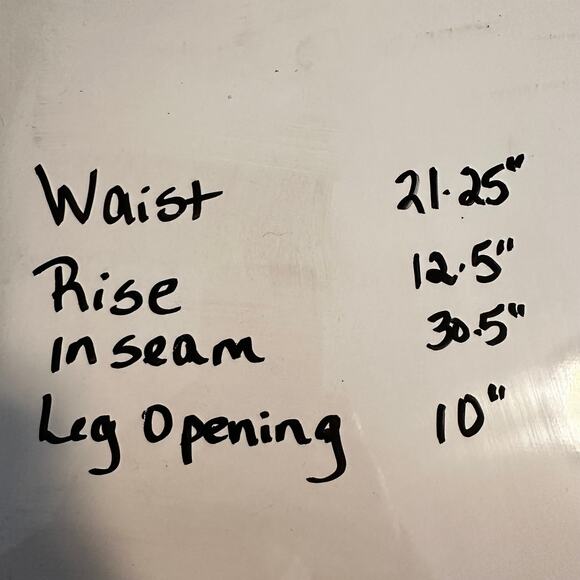 Waist 21.25"
Rise 12.5"
inseam 30.5"
Leg Opening 10"